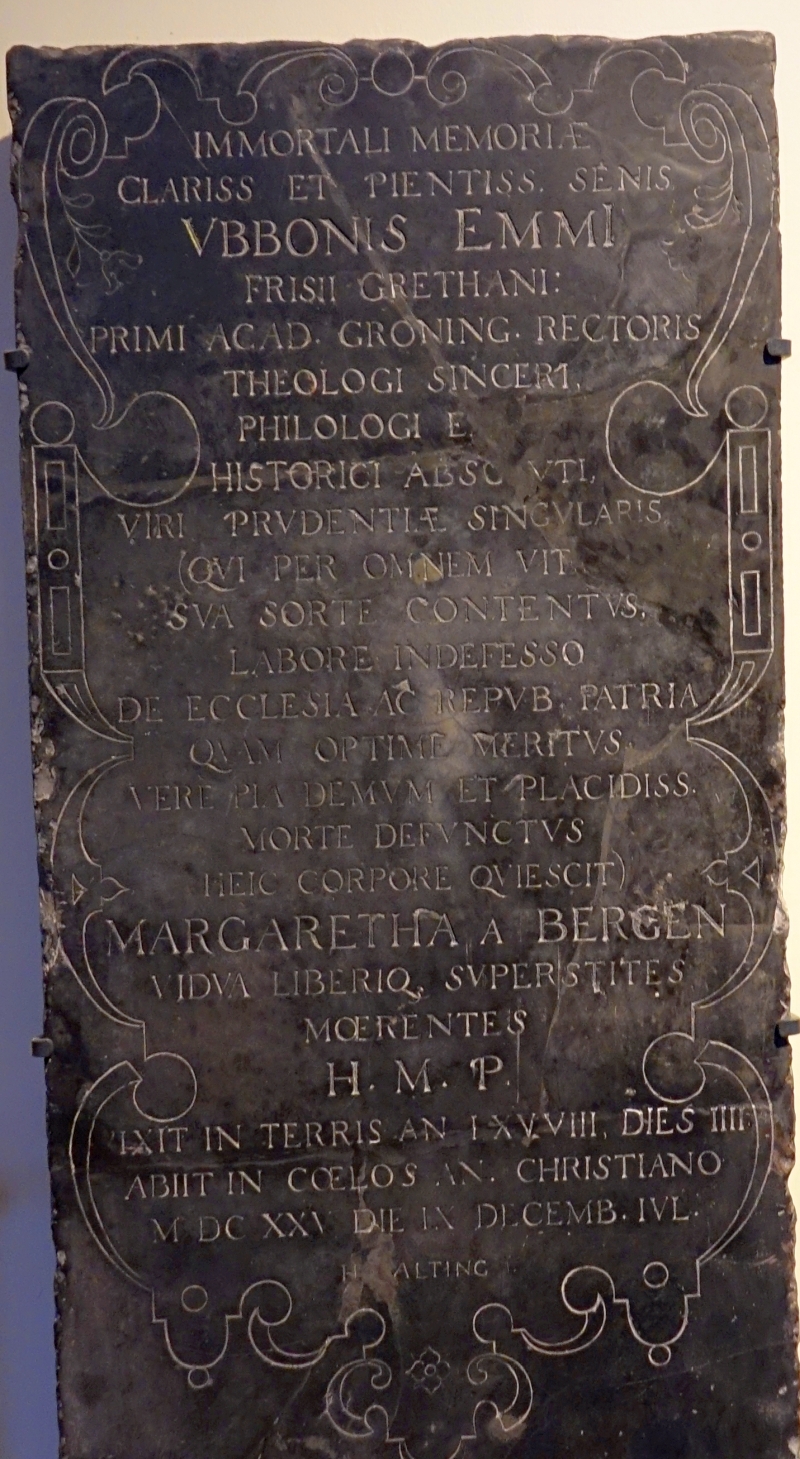 IMMORTALI MEMORIÆ
CLARISS ET PIENTISS. SENIS
VBBONIS EMMI
FRISII GRETHANI:
PRIMI ACAD. GRONING. RECTORIS
THEOLOGI SINCERI,
PHILOLOGI E
HISTORICI ABSO VTI,
VIRI PRVDENTIÆ SINGVLARIS
(QVI PER OMNEM VIT
SVA SORTE CONTENTVS,
LABORE INDEFESSO
DE ECCLESIA AC REPVB. PATRIA
QVAM OPTIME MERITVS,
VERE PIA DEMVM ET PLACIDISS.
MORTE DEFVNCTVS
HEIC CORPORE QVIESCIT)
MARGARETHA A BERGEN
VIDVA LIBERIQ, SVPERSTITES
MŒRENTES
H. M. P.
VIXIT IN TERRIS AN LXXVIII, DIES IIII
ABIIT IN CŒLOS AN. CHRISTIANO
M DC XXV DIE IX DECEMB. IVL.
H ALTING